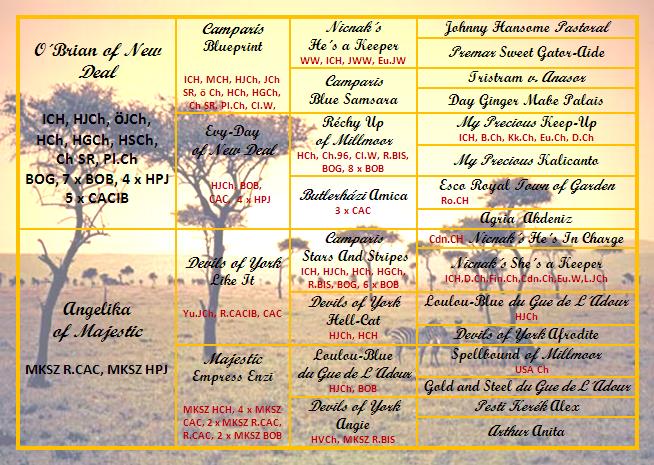 O´Brian of New
Deal
ICH, HJCh, ÖJCh,
HCh, HGCh, HSCh,
Ch SR, Pl.Ch
BOG, 7 x BOB, 4 x HPJ
5 x CACIB
Camparis
Blueprint
ICH, MCH, HJCh, JCh
SR, ö Ch, HCh, HGCh,
Ch SR, Pl.Ch, CI.W,
Evy-Day
of New Deal
HJCh, BOB,
CAC, 4 x HPJ
Nicnak´s
He´s a Keeper
WW, ICH, JWW, Eu.JW
Camparis
Blue Samsara
Réchy Up
of Millmoor
HCh, Ch.96, CI.W, R.BIS,
BOG, 8 x BOB
Butlerházi Amica
3 x CAC
Johnny Hansome Pastoral
Premar Sweet Gator-Aide
Tristram v. Anasor
Day Ginger Mabe Palais
My Precious Keep-Up
ICH, B.Ch, Kk.Ch, Eu.Ch, D.Ch
My Precious Kalicanto
Esco Royal Town of Garden
Ro.CH
Agria Akdeniz
Angelika
of Majestic
MKSZ R.CAC, MKSZ HPJ
Devils of York
Like It
Yu.JCh, R.CACIB, CAC
Majestic
Empress Enzi
MKSZ HCH, 4 x MKSZ
CAC, 2 x MKSZ R.CAC,
R.CAC, 2 x MKSZ BOB
Camparis
Stars And Stripes
ICH, HJCh, HCh, HGCh,
R.BIS, BOG, 6 x BOB
Devils of York
Hell-Cat
HJCh, HCH
Loulou-Blue
du Gue de L´Adour
HJCh, BOB
Devils of York
Angie
HVCh, MKSZ R.BIS
Cdn.CH Nicnak´s He´s In Charge
Nicnak´s She´s a Keeper
ICH,D.Ch,Fin.Ch,Cdn.Ch,Eu.W,L.JCh
Loulou-Blue du Gue de L´Adour
HJCh
Devils of York Afrodite
Spellbound of Millmoor
USA Ch
Gold and Steel du Gue de L´Adour
Pesti Kerék Alex
Arthur Anita